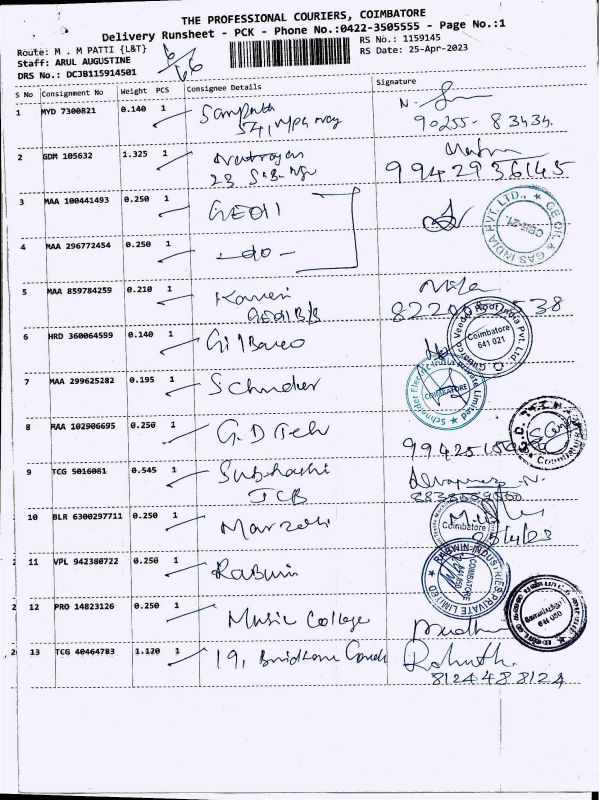 THE PROFESSIONAL COURIERS, COIMBATORE
Delivery Runsheet - PCK - Phone No.:0422-3505555 - Page No.:1
Route: M . M PATTI {L&T}
RS No.: 1159145
Staff: ARUL AUGUSTINE
RS Date: 25-Apr-2023
DRS No.: DCJB115914501
S No Consignment No Weight PCS Consignee Details Signature
1 MYD 7300821 0.140 1 Sampath
90255-83434
2 GDM 105632 1.325 1 Natrayan
9942936145
3 MAA 100441493 0.250 1 GEOil
GE OIL & GAS INDIA PVT. LTD.,
4 MAA 296772454 0.250 1 -do-
5 MAA 859784259 0.210 1 Kaveri
GEOil B/B
6 HRD 360064599 0.140 1 Gilbarco
Gilbarco Veeder Root India Pvt. Ltd.
Coimbatore
641 021
7 MAA 299625282 0.195 1 Schneider
Schneider Electric India Private Limited
COIMBATORE
8 MAA 102906695 0.250 1 G.D Tech
9 TCG 5016081 0.545 1 Subhashi
JCB
10 BLR 6300297711 0.250 1 Marzoli
Coimbatore
25/4/23
11 VPL 942380722 0.250 1 Rabwin
RABWIN INDUSTRIES PRIVATE LIMITED
COIMBATORE
12 PRO 14823126 0.250 1 Music College
13 TCG 40464783 1.120 1 19,
Rohith.
8124488124